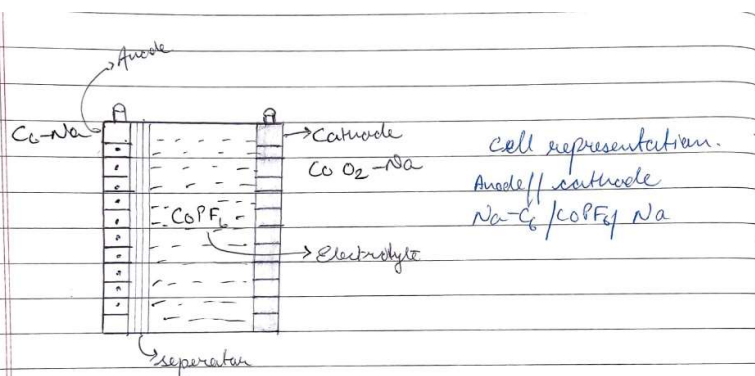 Anode
C6-Na
Cathode
CoO2-Na
CoPF6
Electrolyte
seperator
cell representation.
Anode // cathode
Na-C6 / CoPF6 / Na